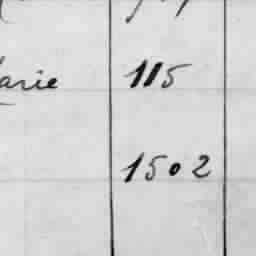 arie 115
1502